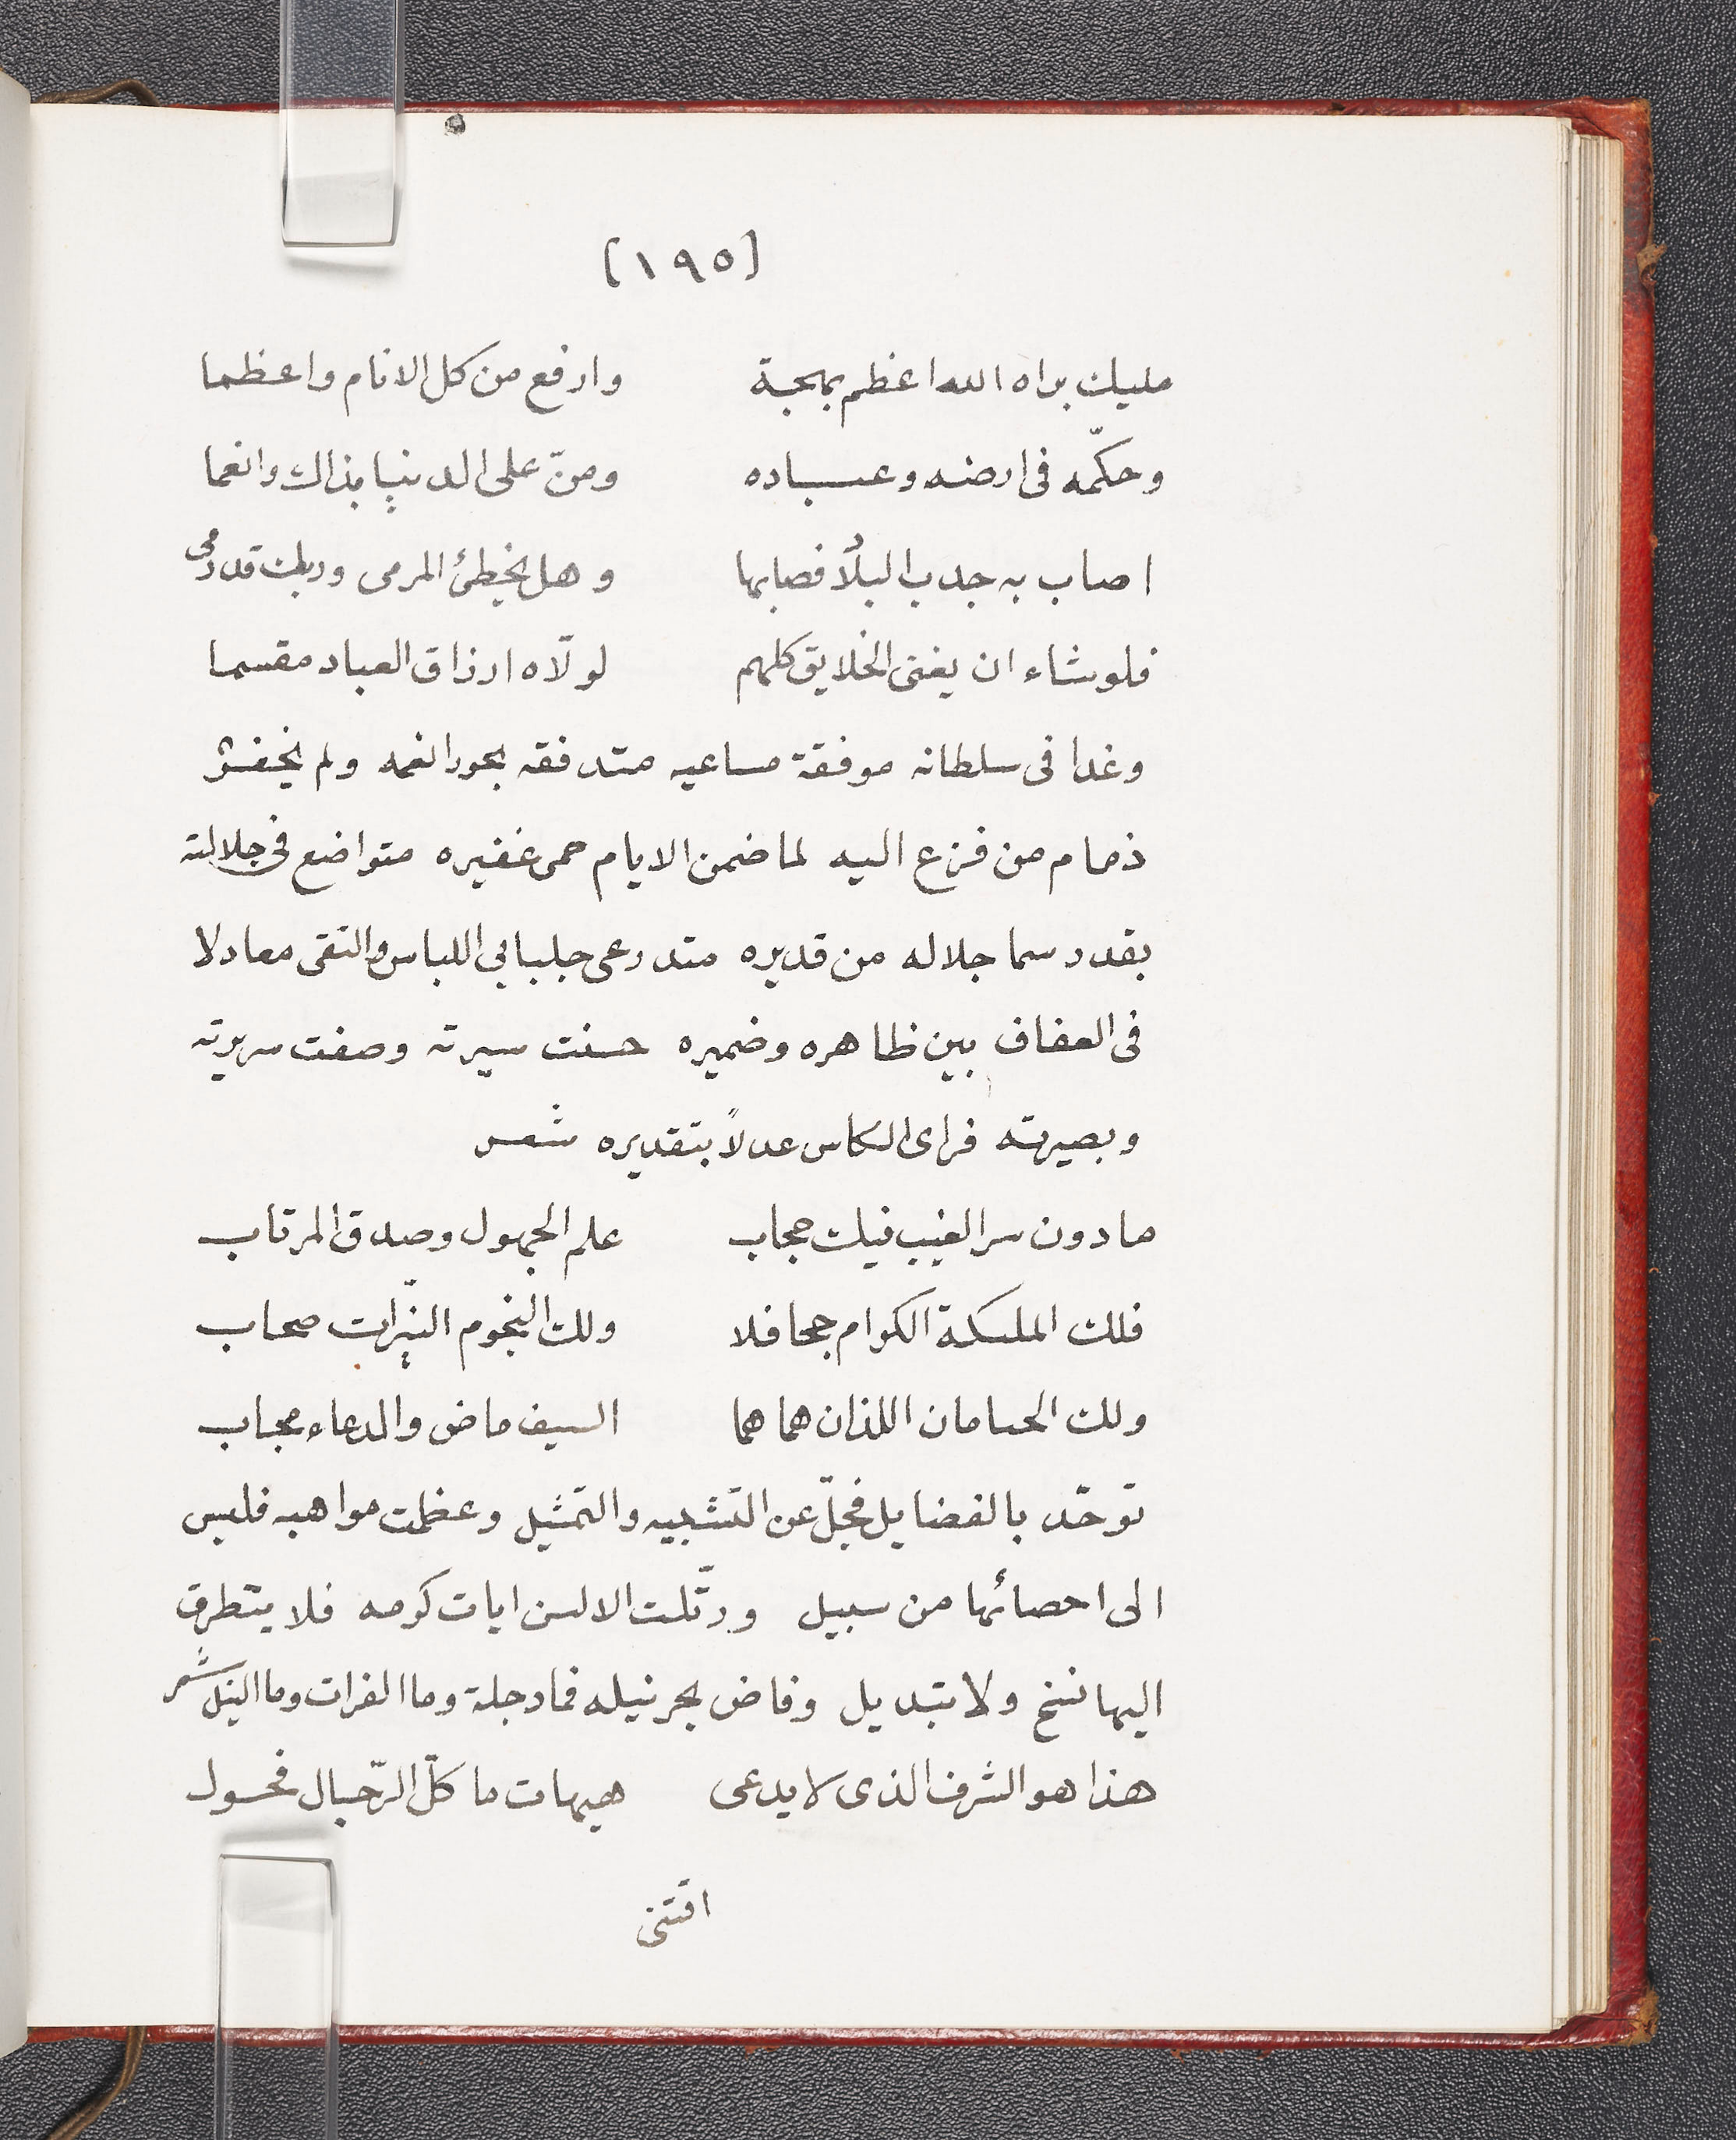 (١٩٥)
مليك براه الله اعظم بهجة وارفع من كل الانام واعظما
وحكّمه فى ارضه وعباده ومنّ على الدنيا بذاك وانعما
اصاب به جدب البلاد فصابها وهل يخطئ المرمى وربك قد رمى
فلو شاء ان يغنى الخلايق كلهم لولّاه ارزاق العباد مقسما
وغدا فى سلطانه موفقة مساعيه متدفقه بحور انعمه ولم يخفر
ذمام من فزع اليه لما ضمن الايام حمى غفيره متواضع فى جلالته
بقدر سما جلاله من قديره متدرعى جلبابى اللباس والتقى معادلا
فى العفاف بين ظاهره وضميره حسنت سيرته وصفت سريرته
وبصيرته فراى الكاس عدلاً بتقديره شعر
ما دون سر الغيب فيك حجاب علم الجهول وصدق المرتاب
فلك المليكة الكرام جحافلا ولك النجوم النيّرات صحاب
ولك الحسامان اللذان هما هما السيف ماض والدعاء مجاب
توحّد بالفضايل فجلّ عن التشبيه والتمثيل وعظمت مواهبه فليس
الى احصائها من سبيل ورتّلت الالسن ايات كرمه فلا يتطرق
اليها نسخ ولا تبديل وفاض بحر نيله فما دجلة وما الفرات وما النيل شعر
هذا هو الشرف الذى لا يدعى هيهات ما كلّ الرّجال فحول
اقتنى